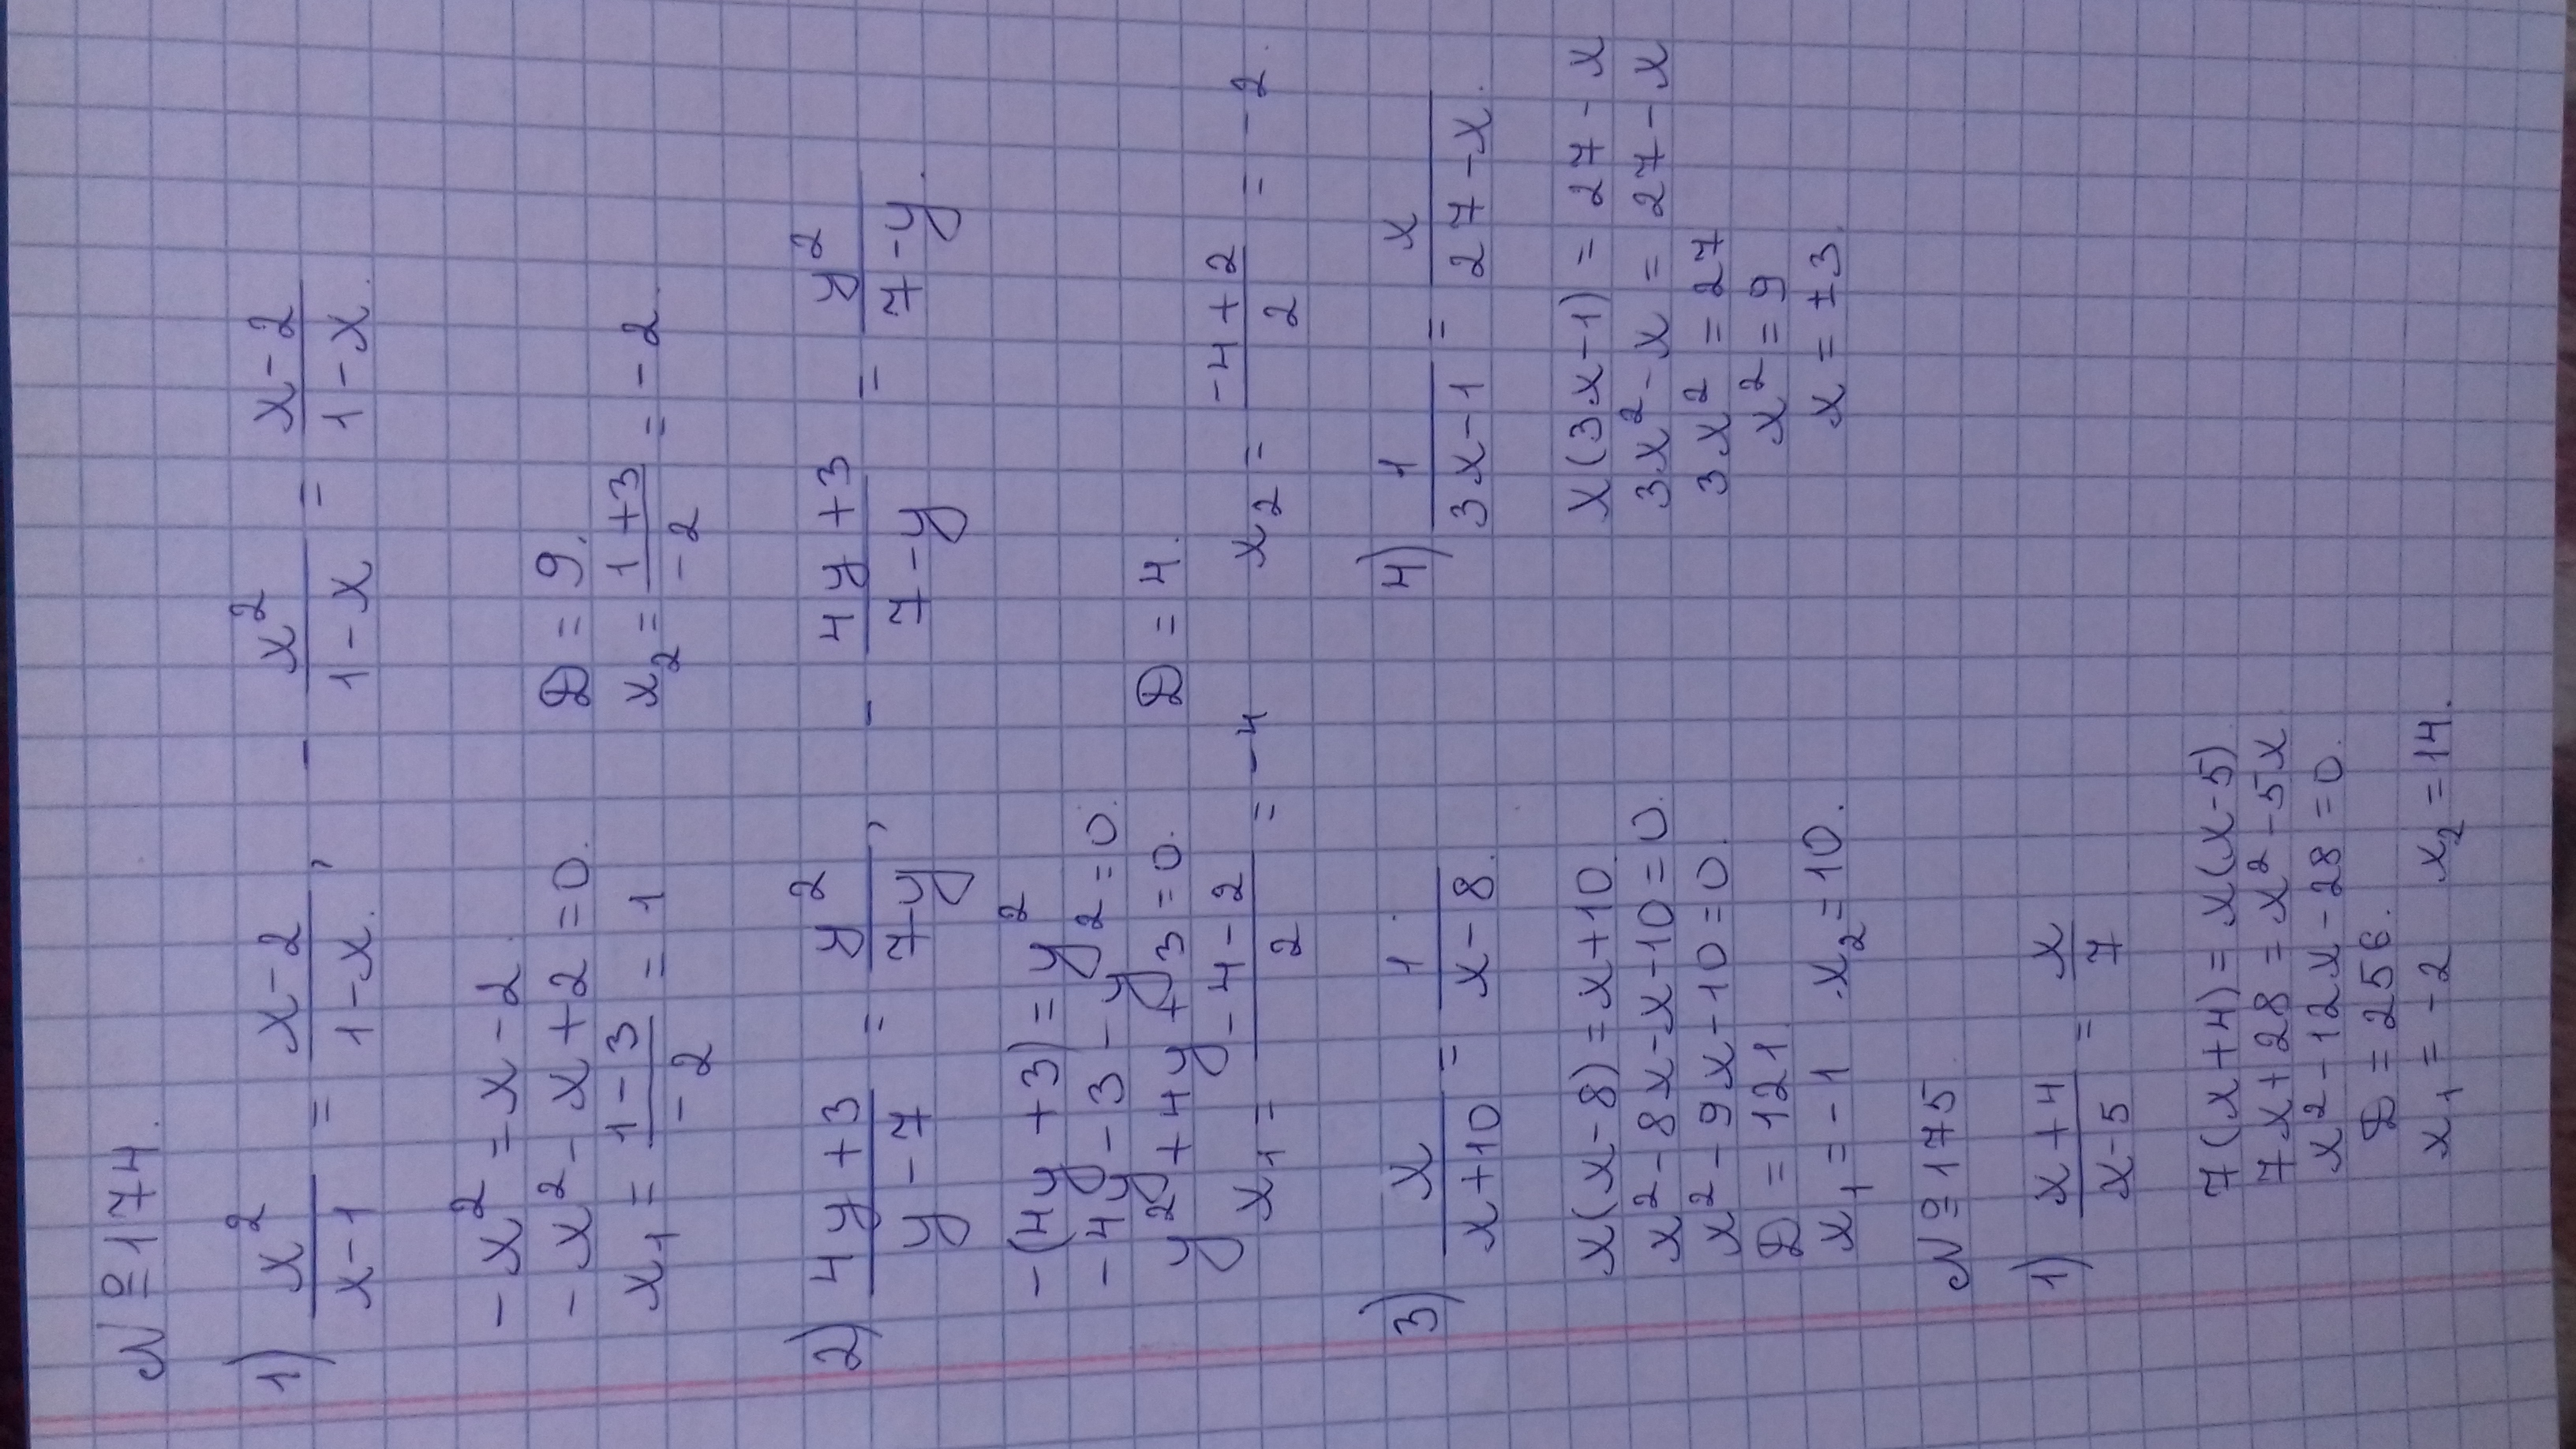 №174.
1) x²/(x-1) = (x-2)/(1-x), - x²/(1-x) = (x-2)/(1-x).
-x² = x-2.
-x² - x + 2 = 0. D = 9.
x₁ = (1-3)/-2 = 1 x₂ = (1+3)/-2 = -2.
2) (4y+3)/(y-7) = y²/(7-y), - (4y+3)/(7-y) = y²/(7-y).
-(4y+3) = y²
-4y-3-y² = 0.
y²+4y+3=0. D = 4.
x₁ = (-4-2)/2 = -4 x₂ = (-4+2)/2 = -2.
3) x/(x+10) = 1/(x-8). 4) 1/(3x-1) = x/(27-x).
x(x-8) = x+10 x(3x-1) = 27-x
x²-8x-x-10=0. 3x²-x = 27-x
x²-9x-10=0. 3x² = 27
D = 121 x² = 9
x₁ = -1 x₂ = 10. x = ±3.
№175
1) (x+4)/(x-5) = x/7
7(x+4) = x(x-5)
7x+28 = x²-5x
x²-12x-28=0.
D = 256.
x₁ = -2 x₂ = 14.